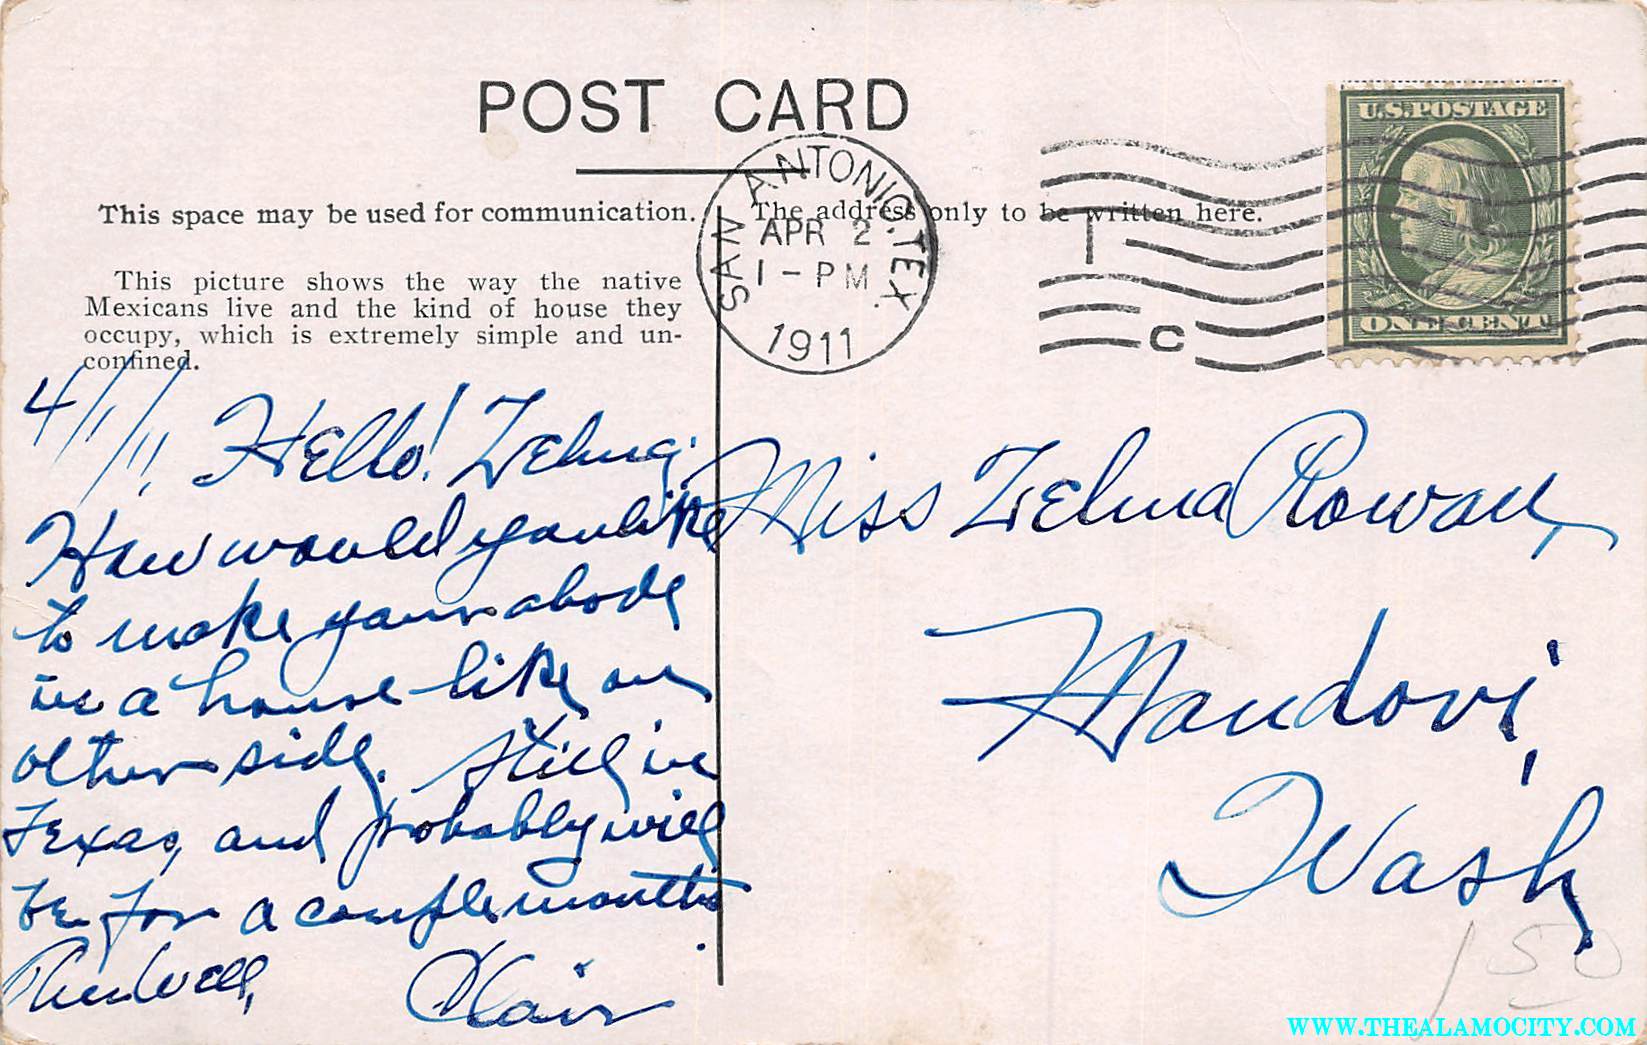 POST CARD
This space may be used for communication.
The address only to be written here.
This picture shows the way the native
Mexicans live and the kind of house they
occupy, which is extremely simple and un-
confined.
SAN ANTONIO, TEX.
APR 2
1 - PM
1911
T
C
U.S.POSTAGE
ONE CENT
4/1/11
Hello! Zelma.
How would you like
to make your abode
in a house like on
other side. Still in
Texas, and probably will
be for a couple months
well,
Clair
Miss Zelma Rowan,
Mondovi,
Wash
150
WWW.THEALAMOCITY.COM